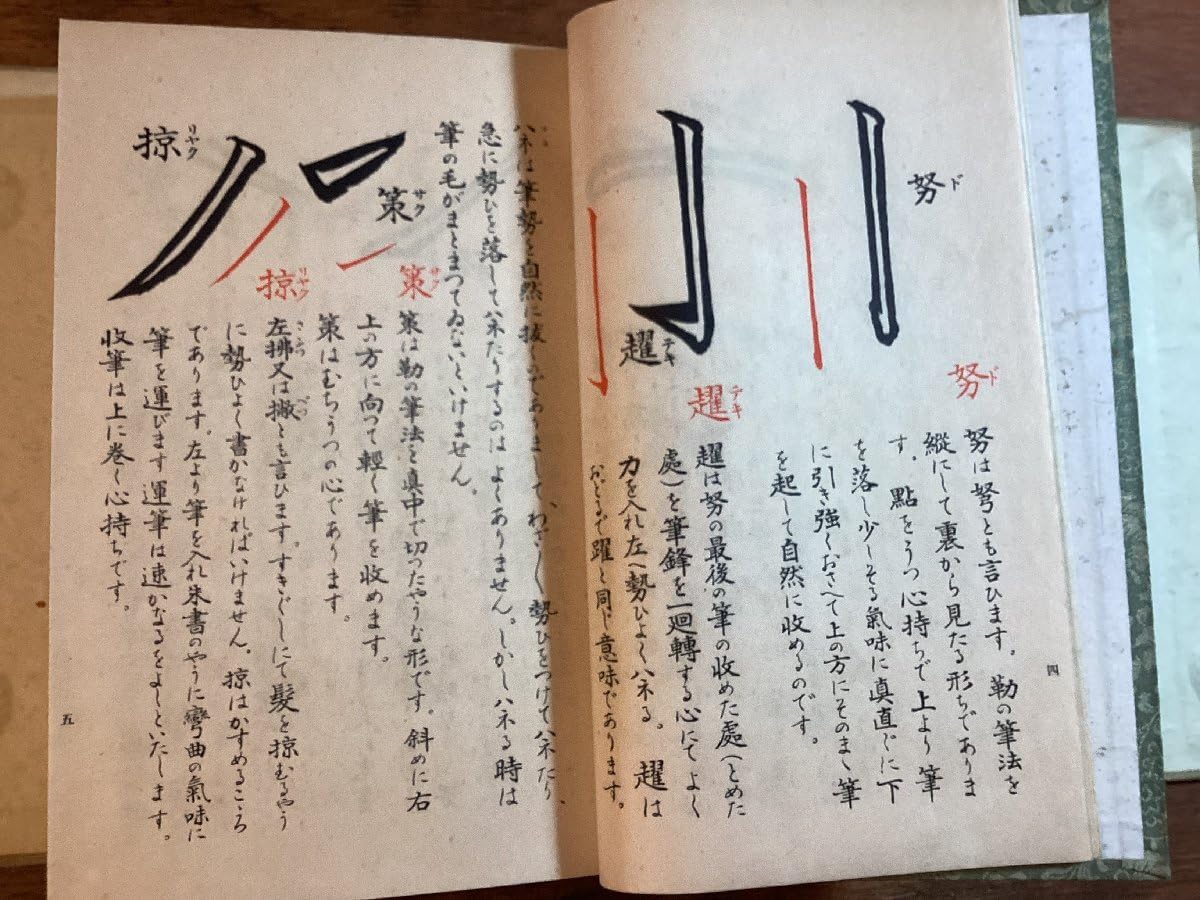 努
ド
努
ド
努は弩とも言ひます。勒の筆法を
縦にして裏から見たる形ちでありま
す。點をうつ心持ちで上より筆
を落し少しそる氣味に真直ぐに下
に引き強くおさへて上の方にそのまゝ筆
を起して自然に收めるのです。
趯
テキ
趯
テキ
趯は努の最後の筆の收めた處(とめた
處)を筆鋒を一廻轉する心にてよく
力を入れ左へ勢ひよくハネる。趯は
おどるで躍と同じ意味であります。
四
ハネは筆勢を自然に拔くのでありまして、わざ〱勢ひをつけてハネたり、
急に勢ひを落してハネたりするのはよくありません。しかしハネる時は
筆の毛がまとまつてゐないといけません。
策
サク
策
サク
策は勒の筆法を真中で切つたやうな形です。斜めに右
上の方に向つて輕く筆を收めます。
策はむちうつの心であります。
掠
リヤク
掠
リヤク
左拂又は撇とも言ひます。すきぐしにて髮を掠むるやう
に勢ひよく書かなければいけません。掠はかすめるこゝろ
であります。左より筆を入れ朱書のやうに彎曲の氣味に
筆を運びます運筆は速かなるをよしといたします。
收筆は上に卷く心持ちです。
五